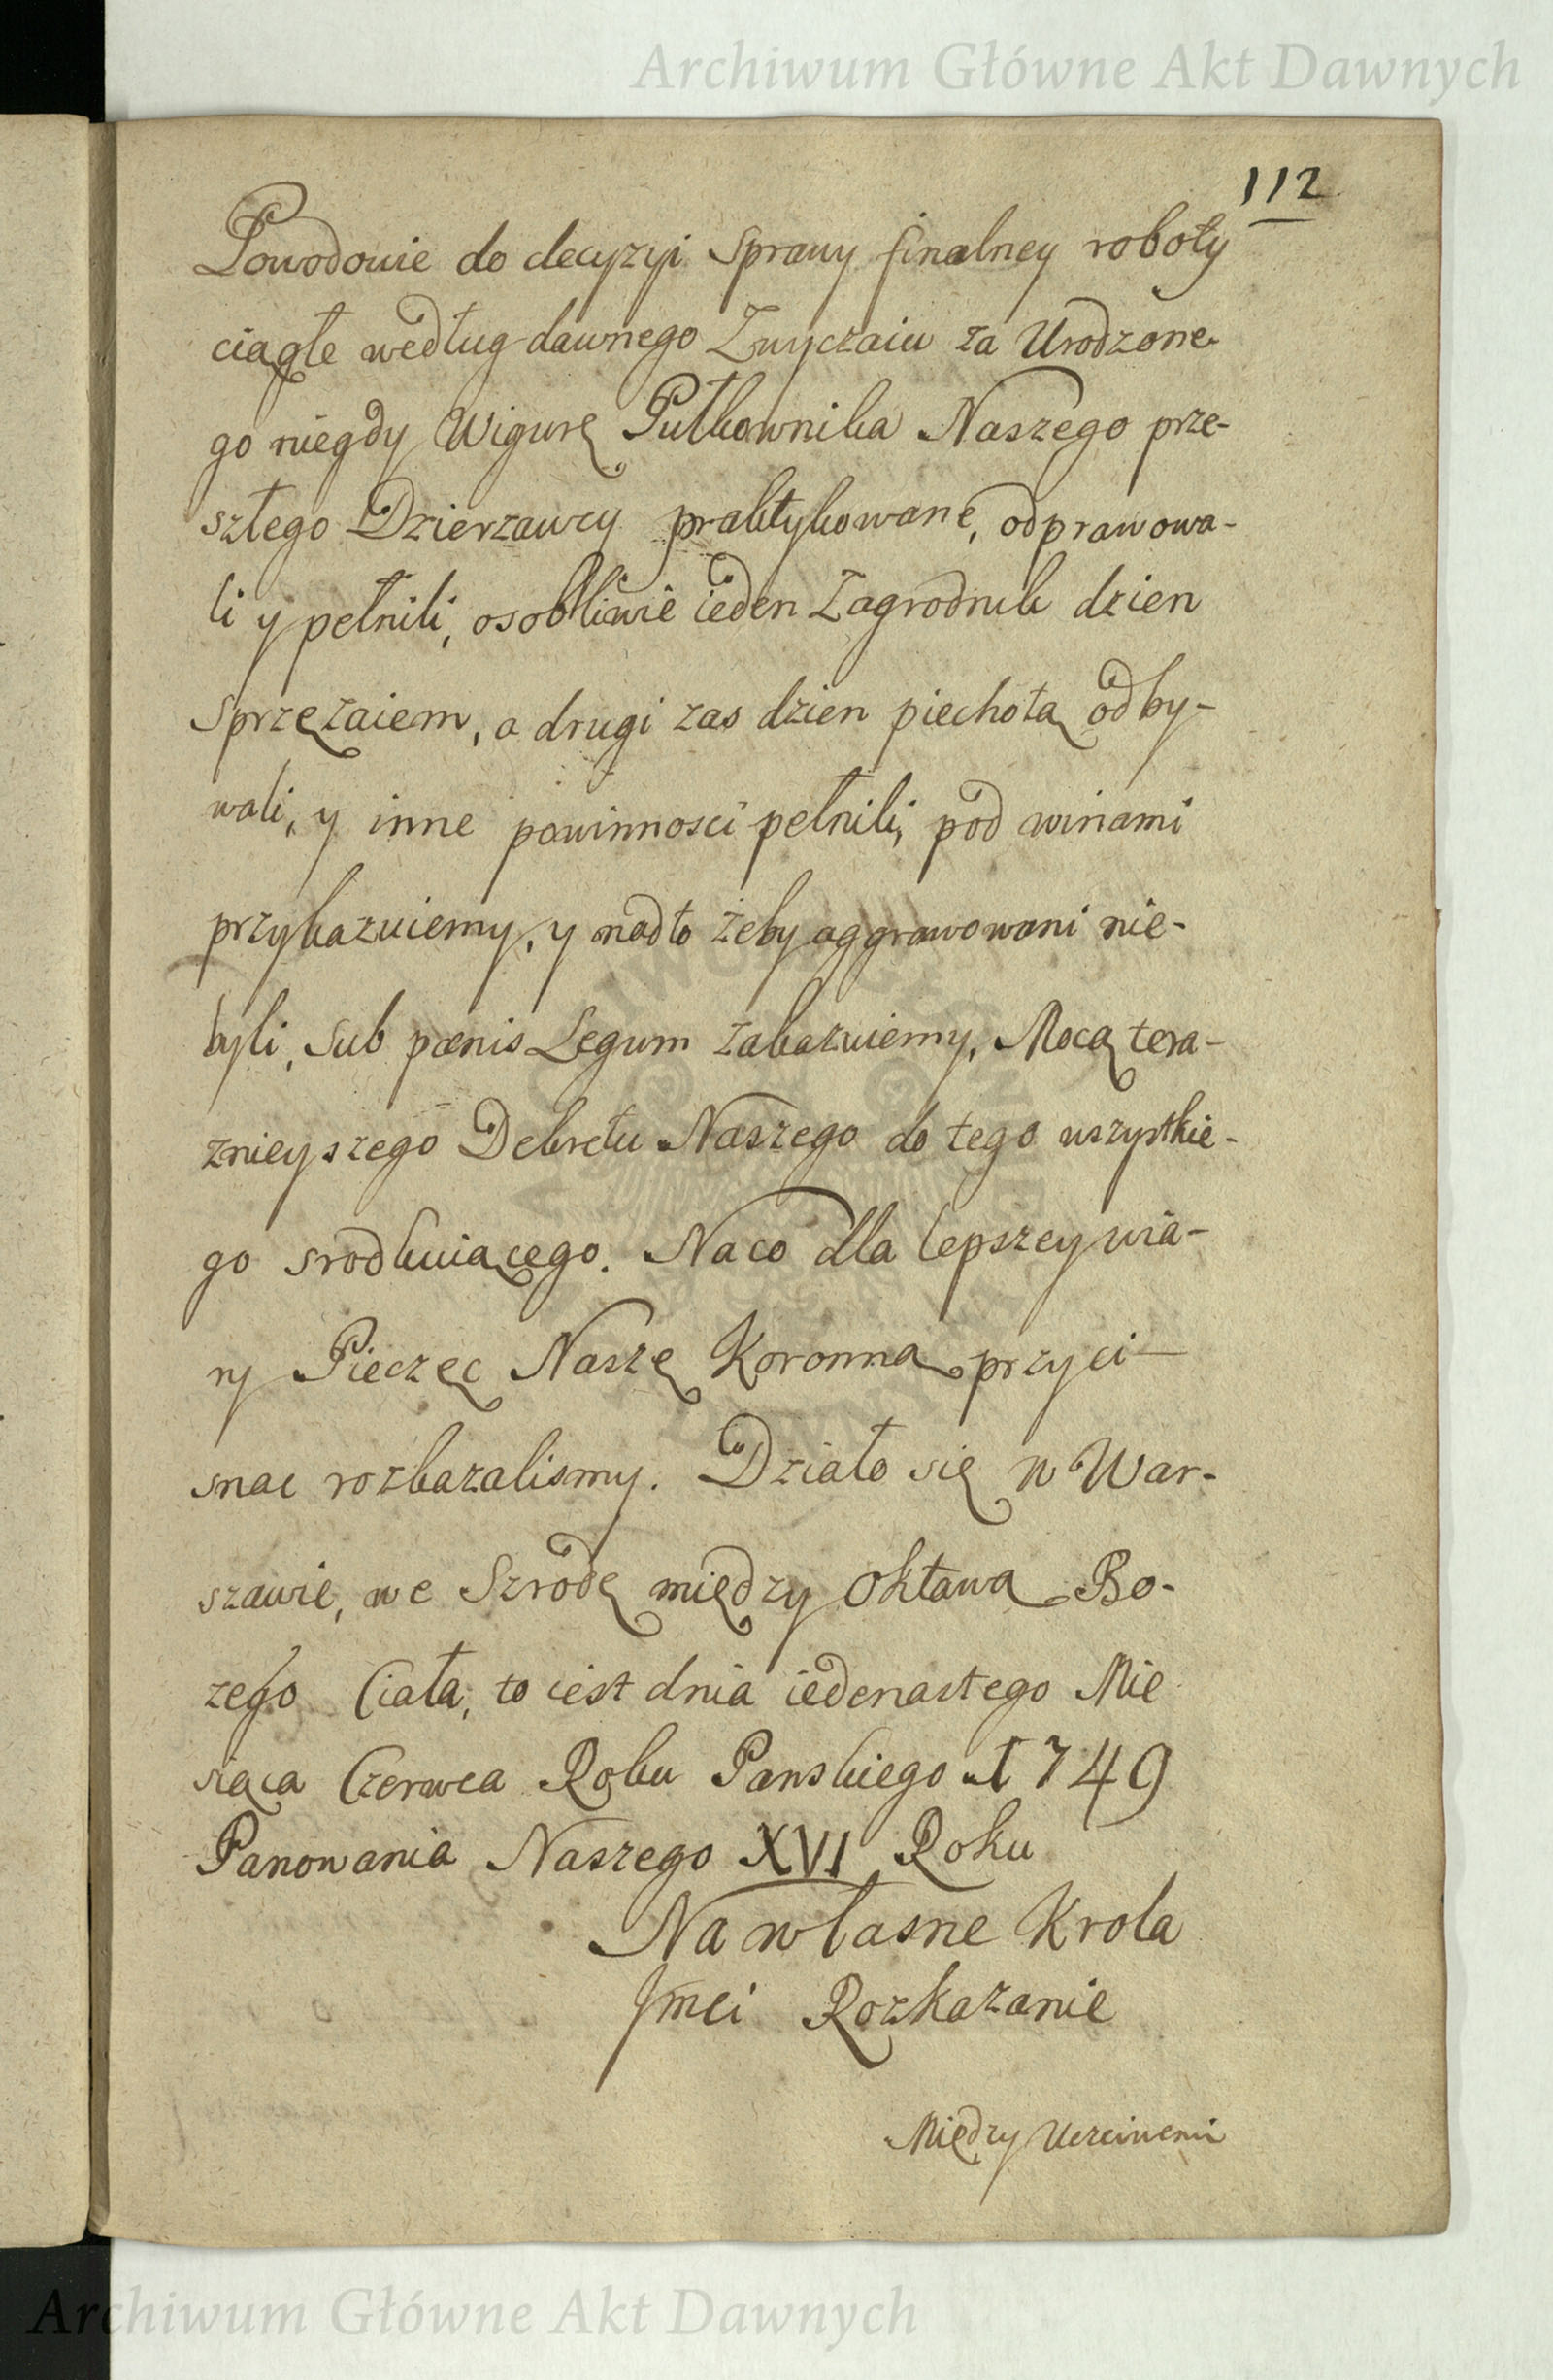 Archiwum Główne Akt Dawnych
112
Powodowie do decyzyi Sprawy finalney roboty
ciągłe według dawnego Zwyczaiu za Urodzone-
go niegdy Wigurę Pułkownika Naszego prze-
szłego Dzierzawcy praktykowane, odprawowa-
li y pełnili, osobliwie ieden Zagrodnik dzien
Sprzężaiem, a drugi zas dzien piechotą odby-
wali, y inne powinnosci pełnili, pod winami
przykazuiemy, y nadto żeby aggrawowani nie-
byli, Sub pœnis Legum zakazuiemy, Mocą tera-
znieyszego Dekretu Naszego do tego wszystkie-
go srodkuiącego. Naco dla lepszey wia-
ry Pieczęc Naszę Koronną przyci-
snac rozkazalismy. Działo się w War-
szawie, we Szrodę między Oktawą Bo-
zego Ciała, to iest dnia iedenastego Mie
siąca Czerwca Roku Panskiego 1749
Panowania Naszego XVI Roku
Na własne Krola
Jmci Rozkazanie
Między Uczciwemi
Archiwum Główne Akt Dawnych